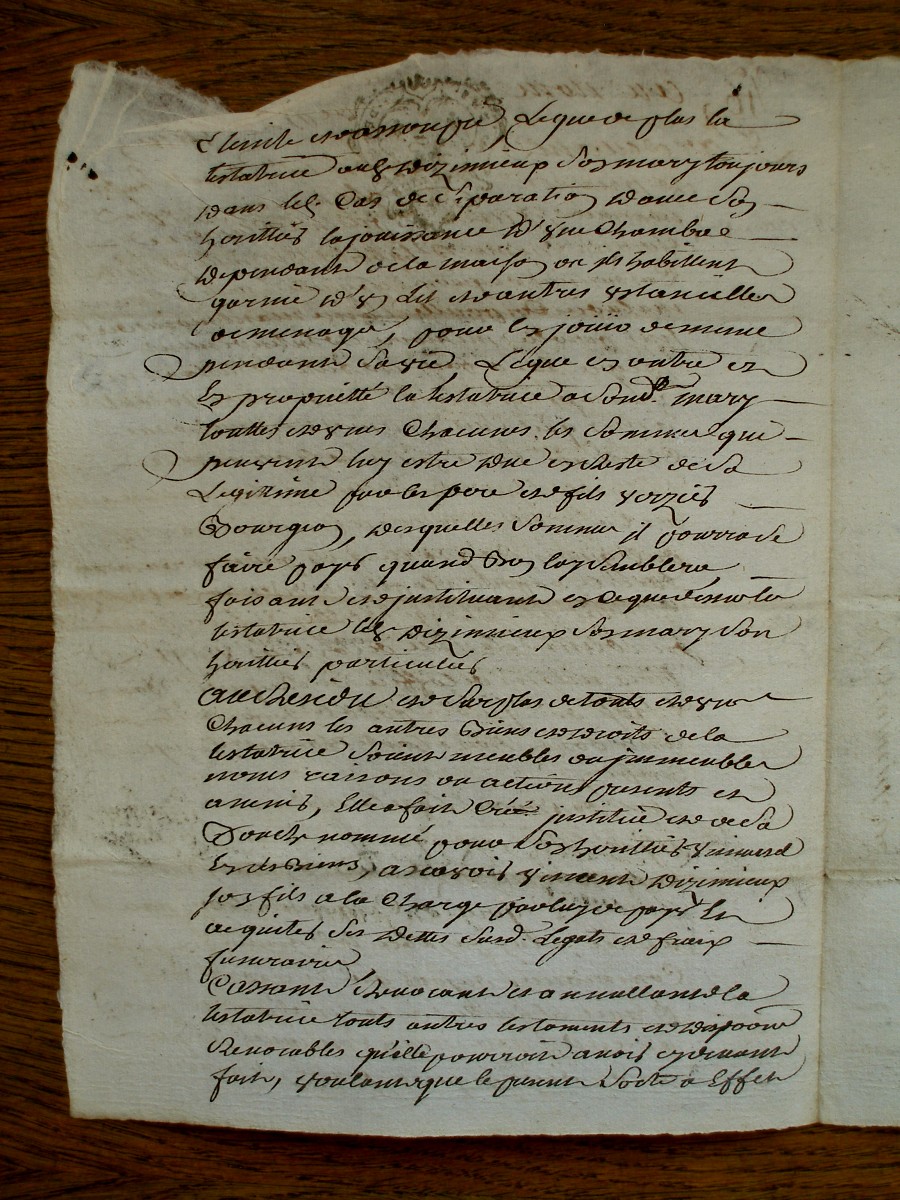 Eteinte et assoupie, Legue de plus la
testatrice aud. Dizimieux son mary toujours
dans led. Cas de Separation d'avec son
heritier la jouissance d'une Chambre
dependante de la maison ou ils habittent
garnie d'un Lit et autres ustancilles
de menage, pour en jouir de meme
pendant sa vie Legue en outre en
en proprietté la testatrice a sond. mary
touttes et unes Chacunes les sommes que
peuvent luy estre due en reste de sa
Legitime par les pere et fils
Bourgeon, desquelles sommes il pourra se
faire payer quand bon luy semblera
faisant et instituant en ce que dessus la
testatrice led. Dizimieux son mary son
heritier particulier
Au Residu et surplus de touts et uns
Chacuns les autres Biens et droits de la
testatrice soient meubles ou immeubles
noms raisons ou actions presents et
avenir, Elle a fait Créé institué et de sa
Bouche nommé pour son heritier universel
, a scavoir Vincent Dizimieux
son fils a la Charge par luy de payer et
acquiter ses dettes susd. Legats et fraix
funeraires
Cassant revocant et annullant la
testatrice touts autres testaments et dispoons
Revocables qu'elle pourroit avoir cydevant
fait, voulant que le present sorte a Effet